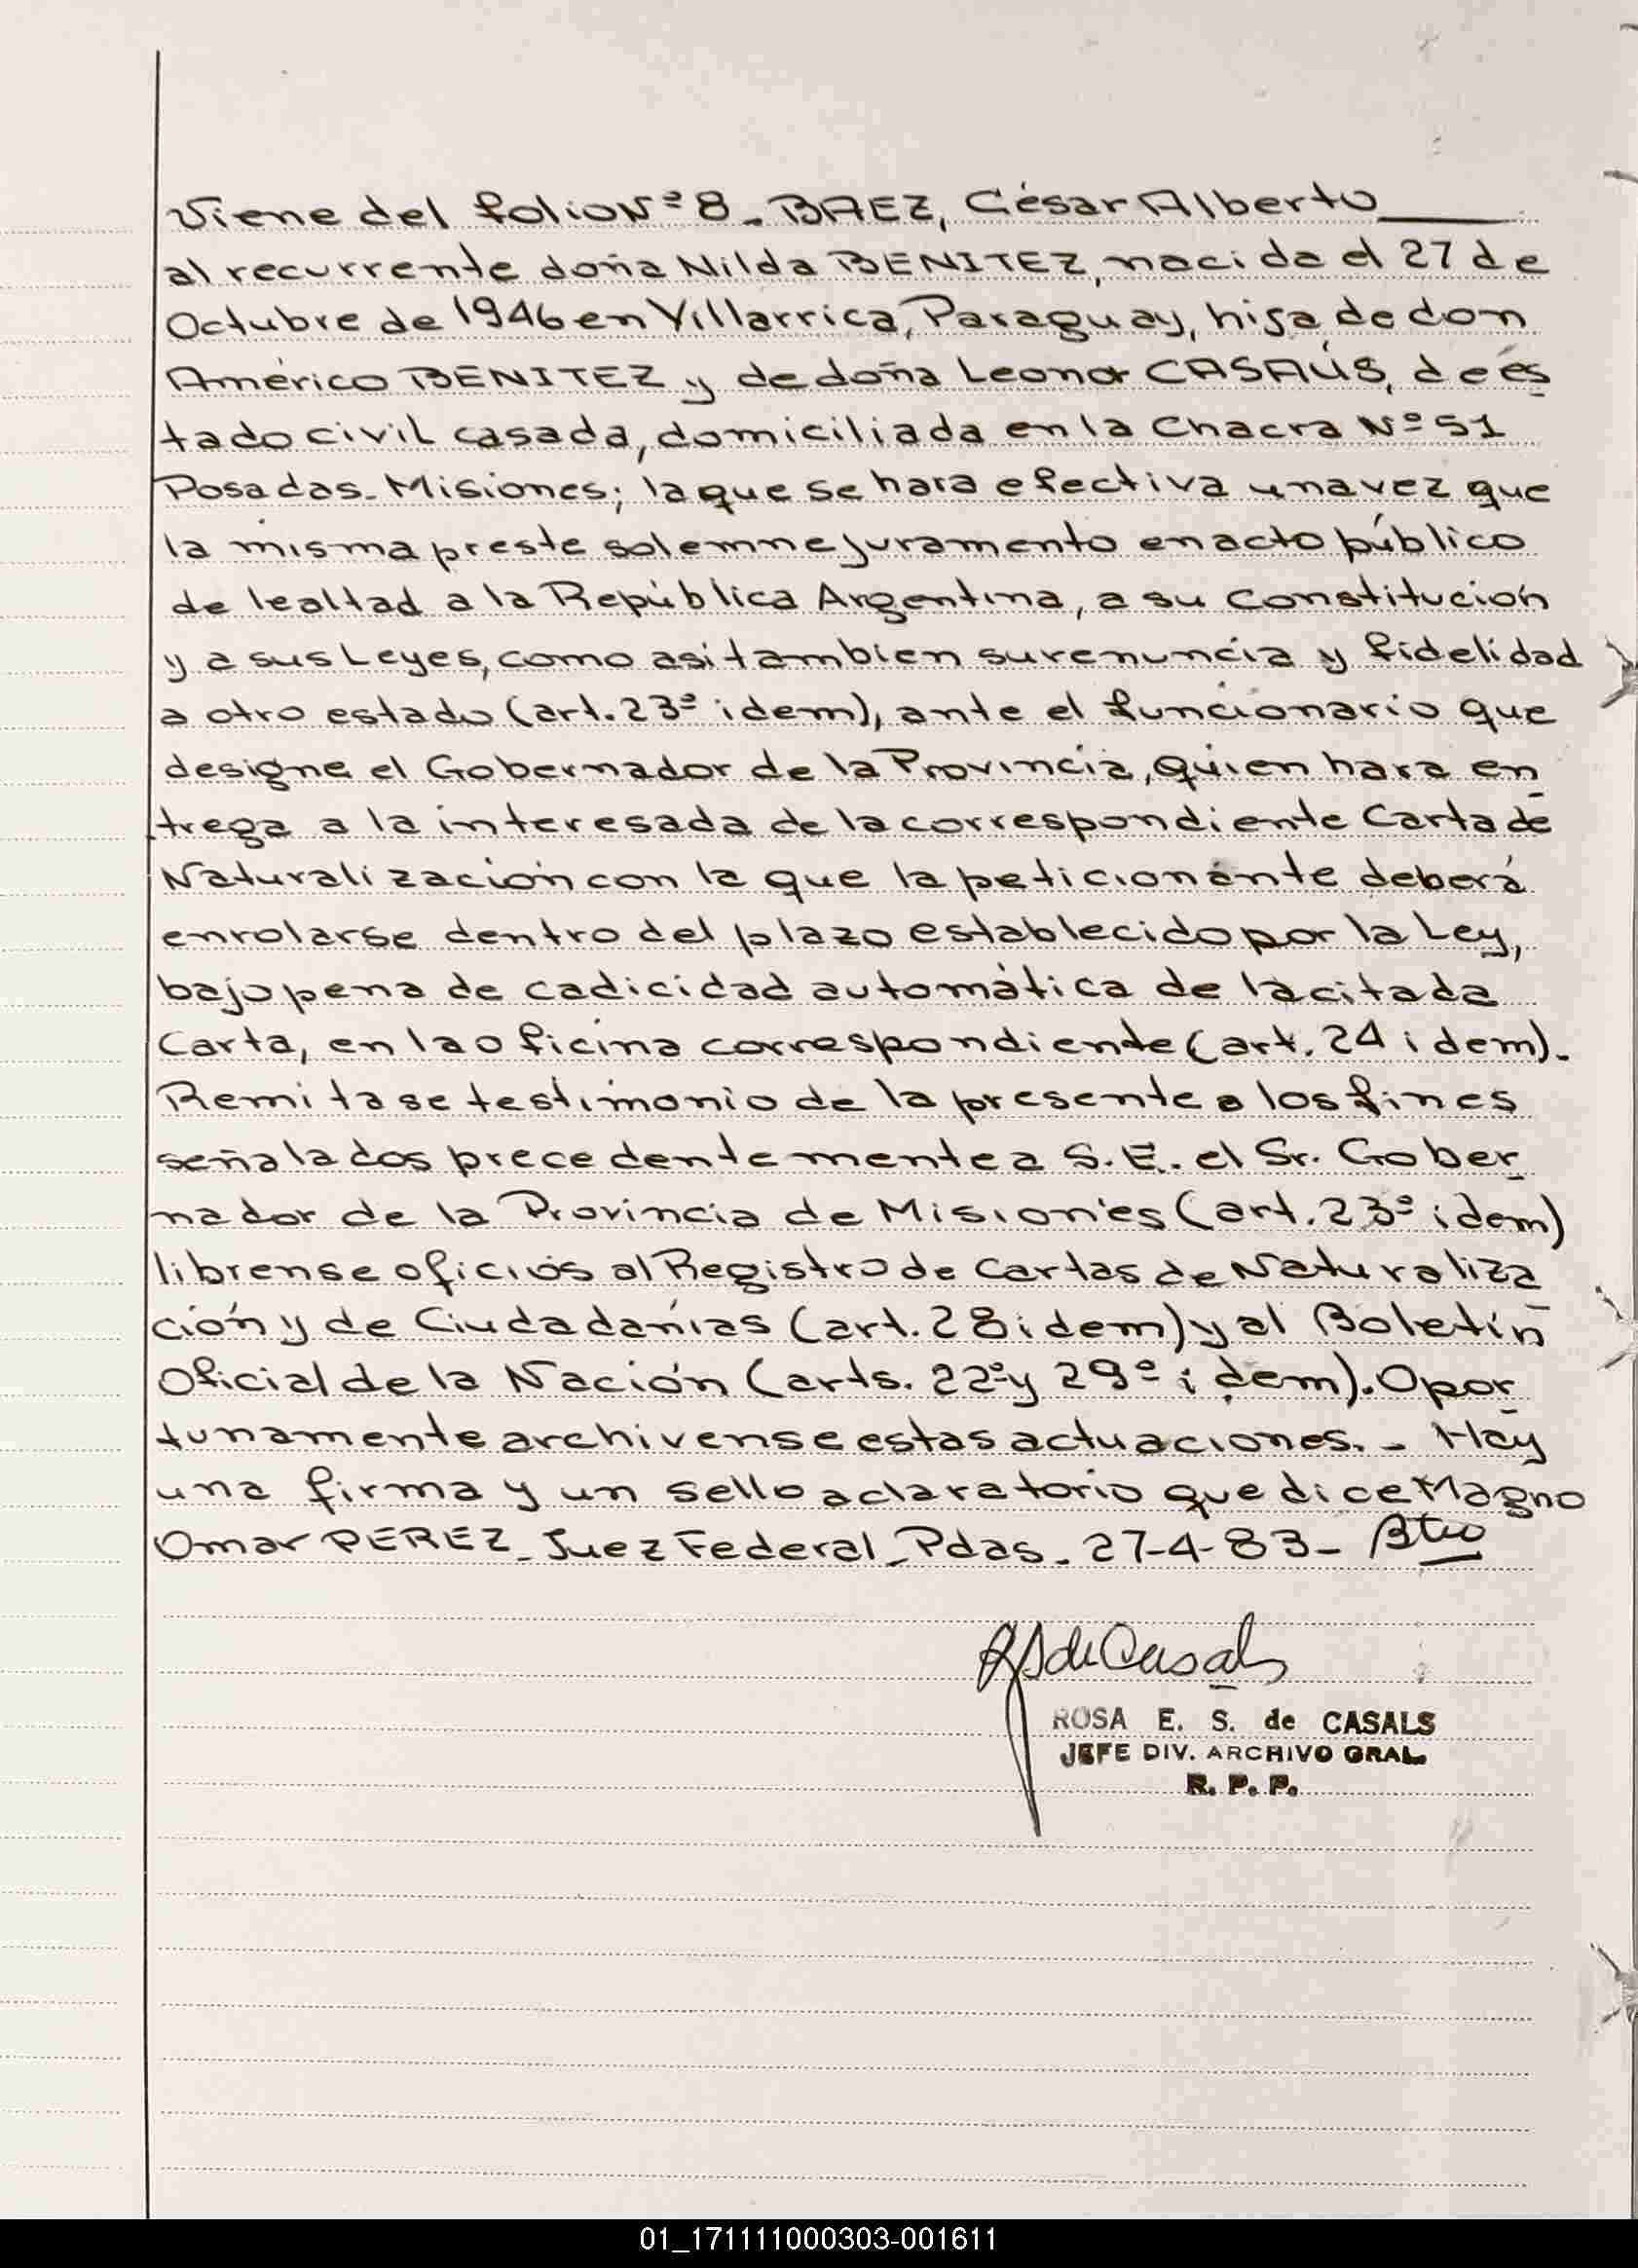 Viene del folio Nº 8_ BAEZ, César Alberto
al recurrente doña Nilda BENITEZ, nacida el 27 de
Octubre de 1946 en Villarrica, Paraguay, hija de don
Américo BENITEZ y de doña Leonor CASAÚS, de es
tado civil casada, domiciliada en la Chacra Nº 51
Posadas_ Misiones; la que se hará efectiva una vez que
la misma preste solemne juramento en acto público
de lealtad a la República Argentina, a su Constitución
y a sus Leyes, como asi tambien su renuncia y fidelidad
a otro estado (art. 23º idem), ante el funcionario que
designe el Gobernador de la Provincia, quien hara en
trega a la interesada de la correspondiente Carta de
Naturalización con la que la peticionante deberá
enrolarse dentro del plazo establecido por la Ley,
bajo pena de cadicidad automática de la citada
Carta, en la oficina correspondiente (art. 24 idem).
Remitase testimonio de la presente a los fines
señalados precedentemente a S.E. el Sr. Gober
nador de la Provincia de Misiones (art. 23º idem)
librense oficios al Registro de Cartas de Naturaliza
ción y de Ciudadanías (art. 28 idem) y al Boletín
Oficial de la Nación (arts. 22º y 29º idem). Opor
tunamente archivense estas actuaciones. - Hay
una firma y un sello aclaratorio que dice Magno
Omar PEREZ_ Juez Federal_ Pdas. 27-4-83-
RS de Casals
ROSA E. S. de CASALS
JEFE DIV. ARCHIVO GRAL.
R. P. P.
01_171111000303-001611